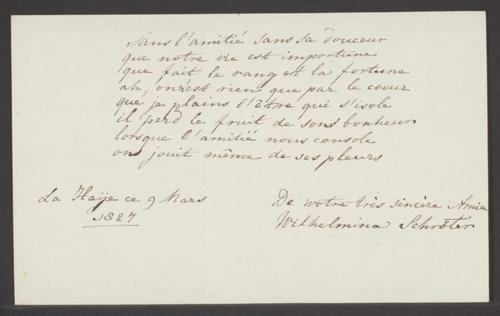 Sans l'amitié sans sa douceur
que notre vie est importune
que fait le rang et la fortune
ah, on n'est rien que par le coeur
que je plains l'être qui s'isole
il perd le fruit de sons bonheur
lorsque l'amitié nous console
ons jouit même de ses pleurs
La Haÿe ce 9 Mars
1827
De votre très sincère Amie
Wilhelmina Schröter